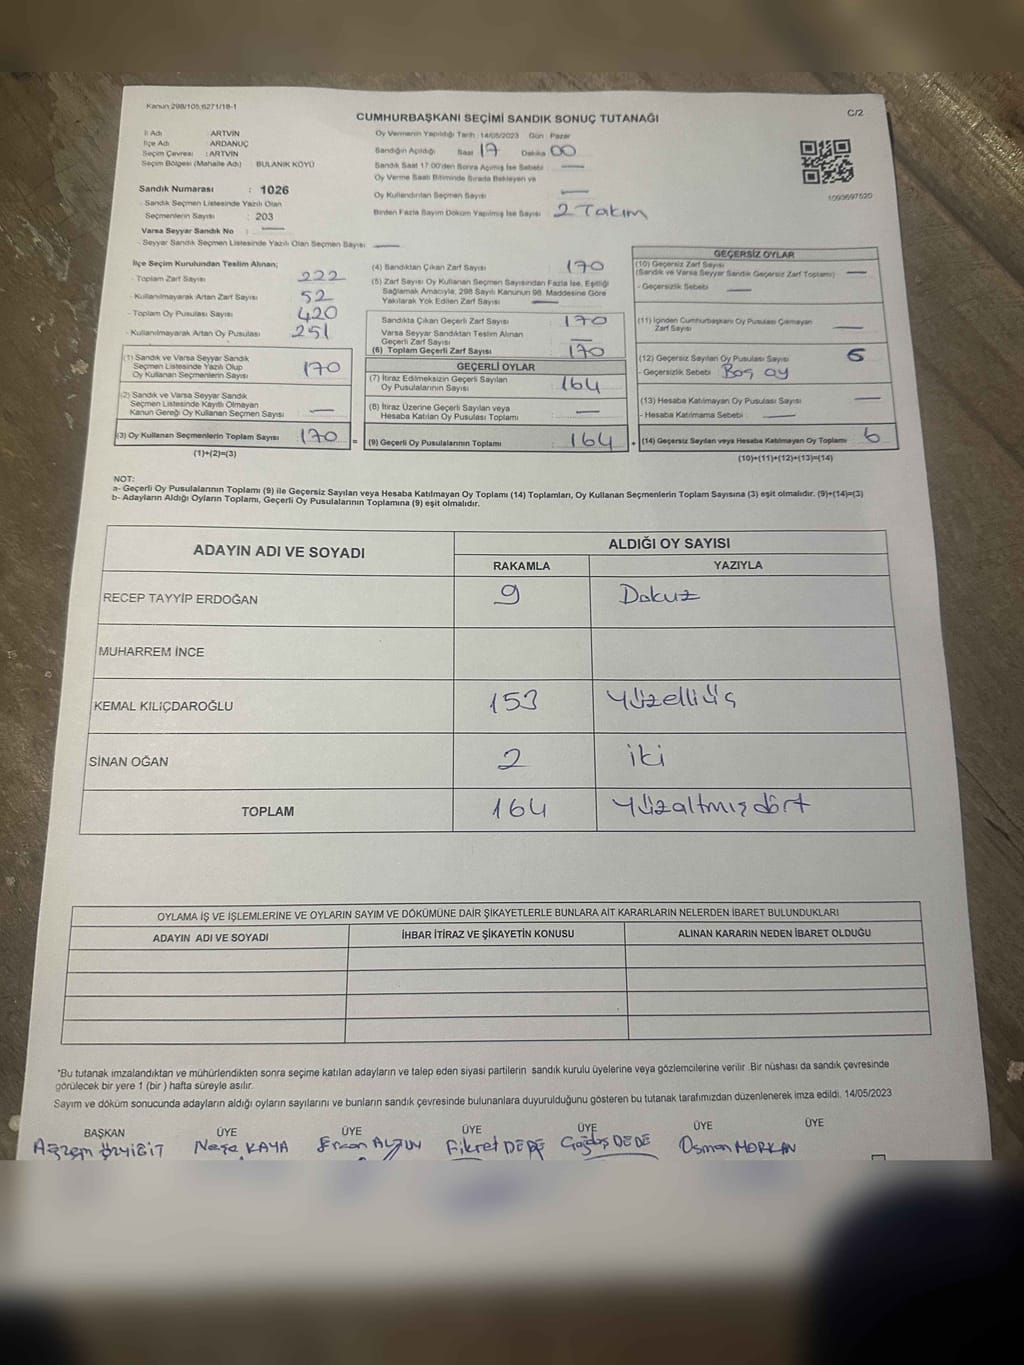 Kanun 298/105;6271/18-1
C/2
CUMHURBAŞKANI SEÇİMİ SANDIK SONUÇ TUTANAĞI
İl Adı : ARTVİN
İlçe Adı : ARDANUÇ
Seçim Çevresi : ARTVİN
Seçim Bölgesi (Mahalle Adı) : BULANIK KÖYÜ
Sandık Numarası : 1026
- Sandık Seçmen Listesinde Yazılı Olan
Seçmenlerin Sayısı : 203
Varsa Seyyar Sandık No : —
- Seyyar Sandık Seçmen Listesinde Yazılı Olan Seçmen Sayısı : —
Oy Vermenin Yapıldığı Tarih : 14/05/2023 Gün : Pazar
Sandığın Açıldığı Saat 17 Dakika 00
Sandık Saat 17:00'den Sonra Açılmış İse Sebebi : —
Oy Verme Saati Bitiminde Sırada Bekleyen ve
Oy Kullandırılan Seçmen Sayısı —
Birden Fazla Sayım Döküm Yapılmış İse Sayısı : 2 Takım
1093697520
İlçe Seçim Kurulundan Teslim Alınan;
- Toplam Zarf Sayısı : 222
- Kullanılmayarak Artan Zarf Sayısı : 52
- Toplam Oy Pusulası Sayısı : 420
- Kullanılmayarak Artan Oy Pusulası : 251
(1) Sandık ve Varsa Seyyar Sandık
Seçmen Listesinde Yazılı Olup
Oy Kullanan Seçmenlerin Sayısı : 170
(2) Sandık ve Varsa Seyyar Sandık
Seçmen Listesinde Kayıtlı Olmayan
Kanun Gereği Oy Kullanan Seçmen Sayısı : —
(3) Oy Kullanan Seçmenlerin Toplam Sayısı : 170
(1)+(2)=(3)
(4) Sandıktan Çıkan Zarf Sayısı : 170
(5) Zarf Sayısı Oy Kullanan Seçmen Sayısından Fazla İse, Eşitliği
Sağlamak Amacıyla, 298 Sayılı Kanunun 98. Maddesine Göre
Yakılarak Yok Edilen Zarf Sayısı : —
Sandıkta Çıkan Geçerli Zarf Sayısı : 170
Varsa Seyyar Sandıktan Teslim Alınan
Geçerli Zarf Sayısı : —
(6) Toplam Geçerli Zarf Sayısı : 170
GEÇERLİ OYLAR
(7) İtiraz Edilmeksizin Geçerli Sayılan
Oy Pusulalarının Sayısı : 164
(8) İtiraz Üzerine Geçerli Sayılan veya
Hesaba Katılan Oy Pusulası Toplamı : —
= (9) Geçerli Oy Pusulalarının Toplamı : 164
GEÇERSİZ OYLAR
(10) Geçersiz Zarf Sayısı
(Sandık ve Varsa Seyyar Sandık Geçersiz Zarf Toplamı) : —
- Geçersizlik Sebebi : —
(11) İçinden Cumhurbaşkanı Oy Pusulası Çıkmayan
Zarf Sayısı : —
(12) Geçersiz Sayılan Oy Pusulası Sayısı : 6
- Geçersizlik Sebebi : Boş oy
(13) Hesaba Katılmayan Oy Pusulası Sayısı : —
- Hesaba Katılmama Sebebi : —
+ (14) Geçersiz Sayılan veya Hesaba Katılmayan Oy Toplamı : 6
(10)+(11)+(12)+(13)=(14)
NOT:
a- Geçerli Oy Pusulalarının Toplamı (9) ile Geçersiz Sayılan veya Hesaba Katılmayan Oy Toplamı (14) Toplamları, Oy Kullanan Seçmenlerin Toplam Sayısına (3) eşit olmalıdır. (9)+(14)=(3)
b- Adayların Aldığı Oyların Toplamı, Geçerli Oy Pusulalarının Toplamına (9) eşit olmalıdır.
ADAYIN ADI VE SOYADI
ALDIĞI OY SAYISI
RAKAMLA YAZIYLA
RECEP TAYYİP ERDOĞAN 9 Dokuz
MUHARREM İNCE
KEMAL KILIÇDAROĞLU 153 Yüzelliüç
SİNAN OĞAN 2 iki
TOPLAM 164 Yüzaltmışdört
OYLAMA İŞ VE İŞLEMLERİNE VE OYLARIN SAYIM VE DÖKÜMÜNE DAİR ŞİKAYETLERLE BUNLARA AİT KARARLARIN NELERDEN İBARET BULUNDUKLARI
ADAYIN ADI VE SOYADI İHBAR İTİRAZ VE ŞİKAYETİN KONUSU ALINAN KARARIN NEDEN İBARET OLDUĞU
*Bu tutanak imzalandıktan ve mühürlendikten sonra seçime katılan adayların ve talep eden siyasi partilerin sandık kurulu üyelerine veya gözlemcilerine verilir. Bir nüshası da sandık çevresinde
görülecek bir yere 1 (bir) hafta süreyle asılır.
Sayım ve döküm sonucunda adayların aldığı oyların sayılarını ve bunların sandık çevresinde bulunanlara duyurulduğunu gösteren bu tutanak tarafımızdan düzenlenerek imza edildi. 14/05/2023
BAŞKAN ÜYE ÜYE ÜYE ÜYE ÜYE ÜYE
ÖZYİĞİT Neşe KAYA Ercan Fikret DEDE Çağdaş DEDE Osman